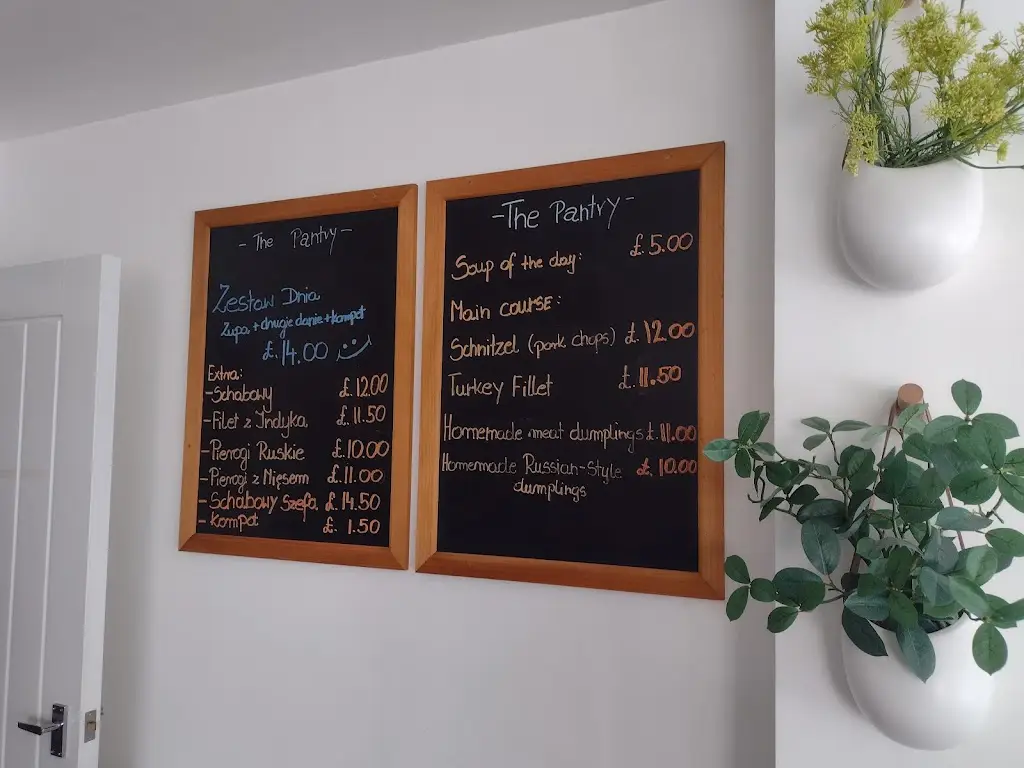 - The Pantry -
Zestaw Dnia
Zupa + drugie danie + kompot
£. 14.00
Extra:
- Schabowy £. 12.00
- Filet z Indyka. £. 11.50
- Pierogi Ruskie £. 10.00
- Pierogi z Mięsem £. 11.00
- Schabowy Szefa. £. 14.50
- Kompot £. 1.50
- The Pantry -
Soup of the day: £. 5.00
Main course:
Schnitzel (pork chops) £. 12.00
Turkey Fillet £. 11.50
Homemade meat dumplings £. 11.00
Homemade Russian-Style £. 10.00
dumplings